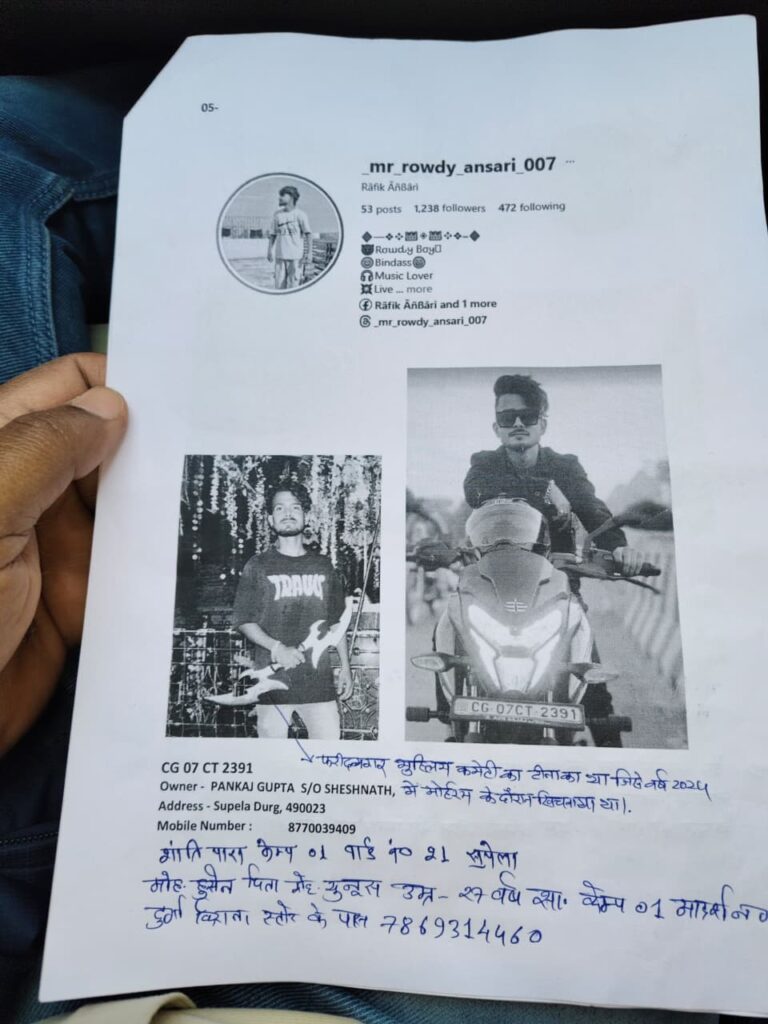 05-
_mr_rowdy_ansari_007 ...
Râfik Âñßâri
53 posts 1,238 followers 472 following
Rowdy Boy
Bindass
Music Lover
Live ... more
Râfik Âñßâri and 1 more
_mr_rowdy_ansari_007
CG 07CT 2391
फरीदनगर मुस्लिम कमेटी का था जिसे वर्ष 2024
CG 07 CT 2391
Owner - PANKAJ GUPTA S/O SHESHNATH, में मोर्हरम के दौरान खिचवाया था।
Address - Supela Durg, 490023
Mobile Number : 8770039409
शांति पारा केम्प 01 वार्ड नं 21 सुपेला
मोह. हुसैन पिता मोह. युनूस उम्र - 27 वर्ष सा. केम्प 01
दुर्गा किराना स्टोर के पास 7869314460